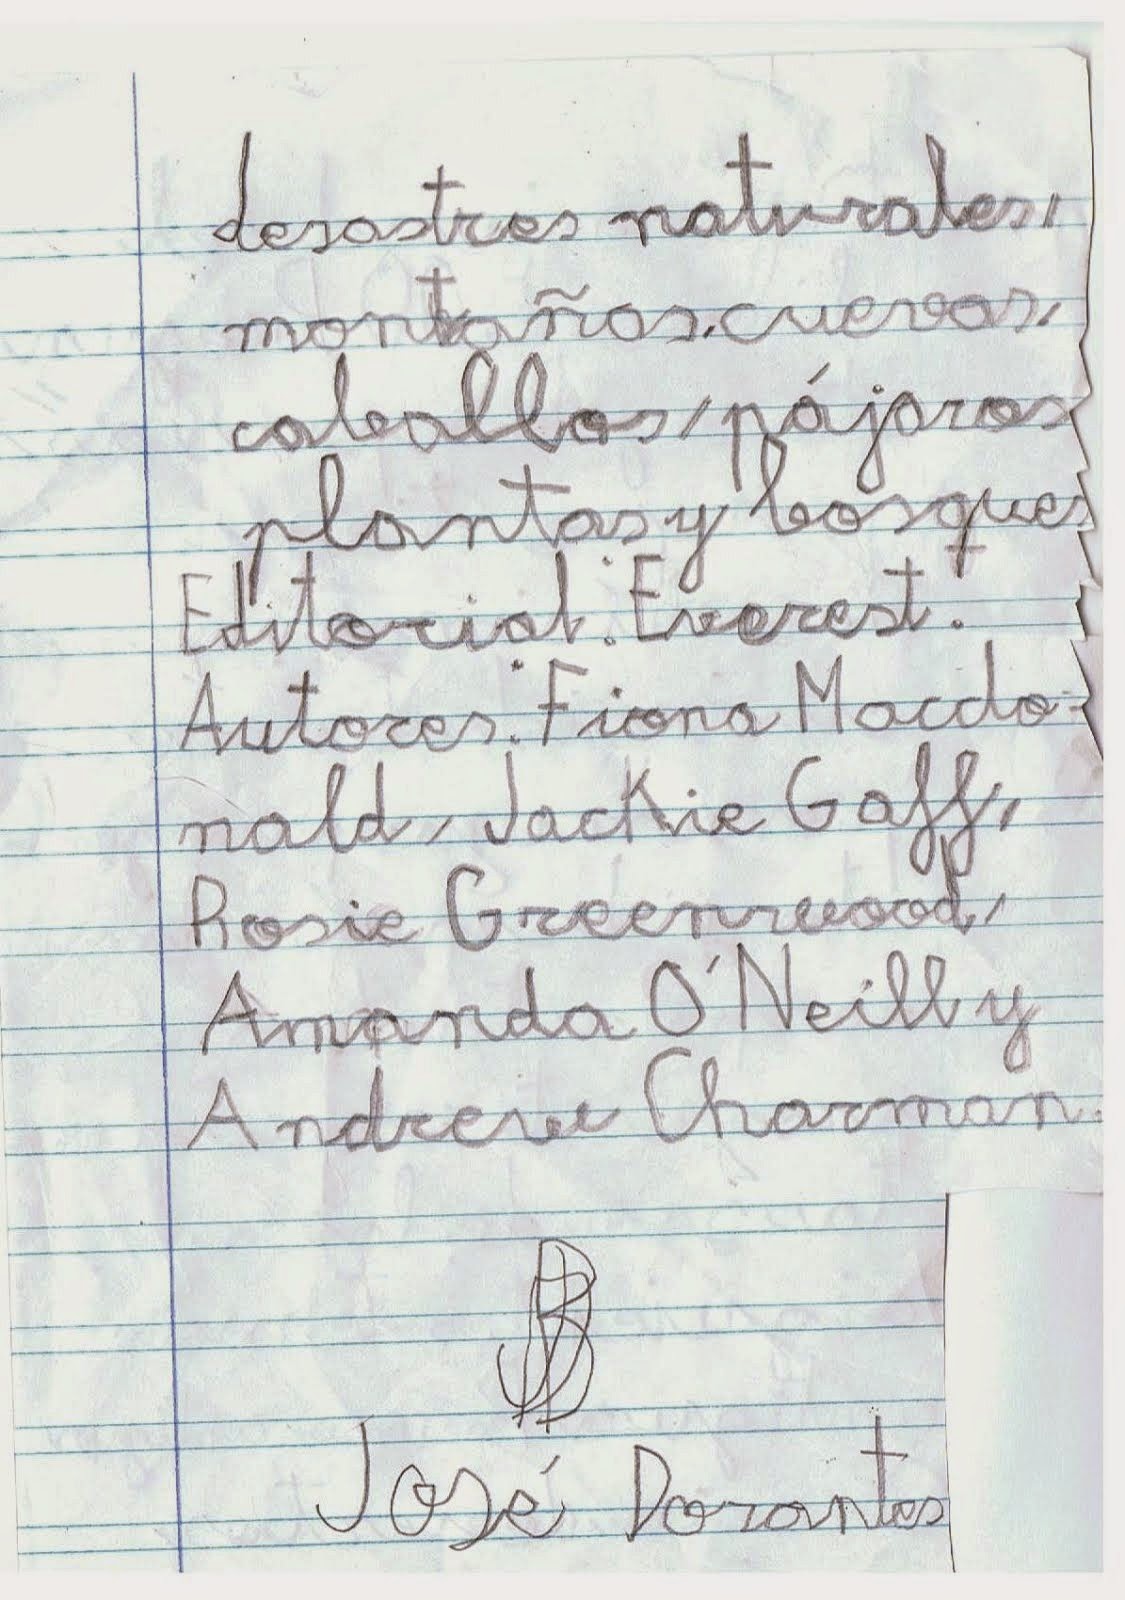 desastres naturales,
montañas, cuevas,
caballos, pájaros
plantas y bosques
Editorial: Everest.
Autores: Fiona Macdo-
nald, Jackie Gaff,
Rosie Greenwood,
Amanda O'Neill y
Andrew Charman.
José Dorantes